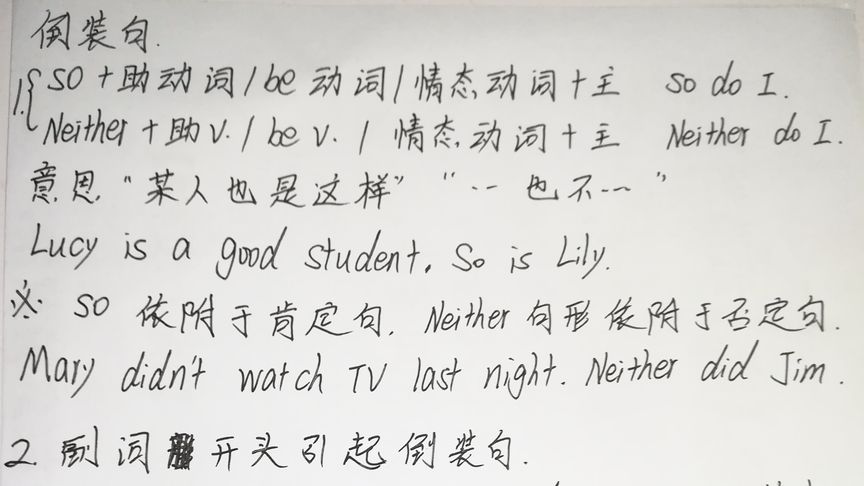 倒装句.
1. { so + 助动词 / be 动词 / 情态动词 + 主 so do I.
Neither + 助 v. / be v. / 情态动词 + 主 Neither do I.
意思 "某人也是这样" "… 也不…"
Lucy is a good student. So is Lily.
※ so 依附于肯定句. Neither 句形依附于否定句.
Mary didn't watch TV last night. Neither did Jim.
2. 副词开头引起倒装句.